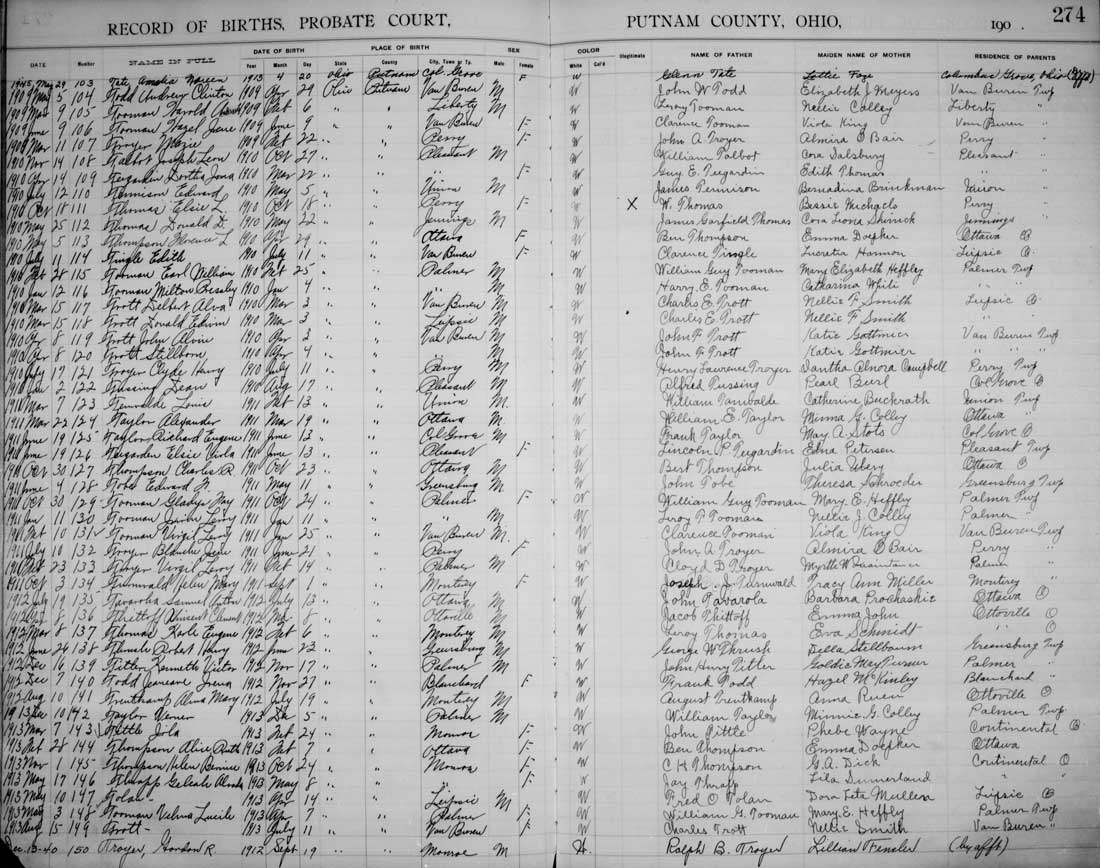 274
RECORD OF BIRTHS, PROBATE COURT, PUTNAM COUNTY, OHIO, 190 .
DATE Number NAME IN FULL DATE OF BIRTH PLACE OF BIRTH SEX COLOR Illegitimate NAME OF FATHER MAIDEN NAME OF MOTHER RESIDENCE OF PARENTS
Year Month Day State County City, Town or Tp. Male Female White Col'd
1945 May 29 103 Tate, Amelia 1913 4 20 Ohio Putnam Col. Grove F W Glenn Tate Lottie Columbus Grove, Ohio
1909 May 5 104 Todd Andrew Clinton 1909 Apr 29 Ohio Putnam Van Buren M W John W Todd Elizabeth J Meyers Van Buren Twp
1909 Mar 9 105 Tooman Harold 1909 Feb 6 " " Liberty M W Leroy Tooman Nellie Colley Liberty "
1909 June 9 106 Tooman Hazel Irene 1909 June 9 " " Van Buren F W Clarence Tooman Viola King Van Buren "
1909 Mar 11 107 Troyer 1909 22 " " Perry F W John A Troyer Almira O Bair Perry "
1910 Nov 14 108 Talbot Joseph Leon 1910 Oct 27 " " Pleasant M W William Talbot Cora Dalsbury Pleasant "
1910 Apr 14 109 Teegarden 1910 Mar 22 " " " F W Guy E. Teegardin Edith Thomas " "
1910 July 12 110 Tennison Edward 1910 May 5 " " Union M W James Tennison Bernadina Brinkman Union "
1910 Oct 18 111 Thomas Elsie L 1910 Oct 18 " " Perry F W X W. Thomas Bessie Michaels Perry "
1910 May 25 112 Thomas Donald D. 1910 May 22 " " Jennings M W James Garfield Thomas Cora Leona Jennings "
1910 May 5 113 Thompson Florence L 1910 Apr 29 " " Ottawa F W Ben Thompson Emma Doepker Ottawa O
1910 July 11 114 Tingle Edith 1910 July 11 " " Van Buren F W Clarence Tingle Lucretia Harmon Leipsic O.
1910 Feb 28 115 Tooman Earl William 1910 Feb 25 " " Palmer M W William Guy Tooman Mary Elizabeth Heffley Palmer Twp
1910 Jan 12 116 Tooman Milton 1910 Jan 4 " " " M W Harry. E. Tooman Catharina White " "
1910 Mar 15 117 Trott Delbert Alva 1910 Mar 3 " " Van Buren M W Charles E Trott Nellie F Smith Leipsic O.
1910 Mar 15 118 Trott Donald Edwin 1910 Mar 3 " " Leipsic M W Charles E Trott Nellie F Smith "
1910 Apr 8 119 Trott John Alvin 1910 Apr 3 " " Van Buren M W John F Trott Katie Gottmier Van Buren Twp
1910 Apr 8 120 Trott Stillborn 1910 Apr 4 " " " M W John F Trott Katie Gottmier " " "
1910 July 19 121 Troyer Clyde Harry 1910 July 11 " " Perry M W Henry Laurence Troyer Santha Alnora Campbell Perry Twp
2 122 Tussing Dean 1910 Aug 17 " " Pleasant M W Alfred Tussing Pearl Col Grove O
1911 Mar 7 123 Louis 1911 Feb 13 " " Union M. W William Catherine Buckrath Union Twp
1911 Mar 22 124 Taylor Alexander 1911 Mar 19 " " Ottawa M. W William E. Taylor Minna G. Colley Ottawa "
1911 June 19 125 Taylor Richard Eugene 1911 June 13 " " Col Grove M W Frank Taylor May A Stots Col Grove O
1911 June 19 126 Teegarden Elsie Viola 1911 June 13 " " Pleasant F W Lincoln P Teegardin Edna Peterson Pleasant Twp
1911 Oct 30 127 Thompson Charles R. 1911 Oct 23 " " Ottawa M W Bert Thompson Julia Ottawa O
1911 June 4 128 Tobe Edward 1911 May 11 " " Greensburg M W John Tobe Theresa Schroeder Greensburg Twp
1911 Oct 30 129 Tooman Gladys May 1911 Oct 24 " " Palmer F W William Guy Tooman Mary. E. Heffly Palmer Twp
1911 Jan 11 130 Tooman Leroy 1911 Jan 11 " " " M W Leroy P Tooman Nellie J. Colley Palmer "
1911 Feb 10 131 Tooman Virgil Leroy 1911 Jan 25 " " Van Buren M. W Clarence Tooman Viola King Van Buren Twp
1911 July 10 132 Troyer Blanche Irene 1911 June 21 " " Perry F W John A Troyer Almira O Bair Perry "
1911 Feb 23 133 Troyer Virgil Leroy 1911 Feb 14 " " Palmer M W Cloyd D Troyer Myrtle W Palmer "
1911 Oct 3 134 Helen Mary 1911 Sept 1 " " Monterey F W Joseph J. Tracy Ann Miller Monterey "
1912 July 19 135 Samuel 1912 July 13 " " Ottawa M W John Tavarola Barbara Ottawa O
136 Vincent 1912 Mar 8 " " Ottoville M W Jacob Emma John Ottoville O
1912 Mar 8 137 Thomas Karle Eugene 1912 Feb 6 " " Monterey M W Leroy Thomas Eva Schmidt " O
1912 June 24 138 Thrush Robert Henry 1912 June 22 " " Greensburg M W George W Thrush Della Stellbaum Greensburg Twp
1912 Dec 16 139 Titter Kenneth Victor 1912 Nov 17 " " Palmer M W John Henry Titter Goldie May Palmer "
1912 Dec 7 140 Todd 1912 Nov 27 " " Blanchard F W Frank Todd Hazel McKinley Blanchard "
1912 Aug 10 141 Trentkamp Alma Mary 1912 July 19 " " Monterey M W August Trentkamp Anna Ruen Ottoville O
1913 10 142 Taylor Verner 1913 5 " " Palmer M W William Taylor Minnie G. Colley Palmer Twp.
1913 Mar 7 143 Tittle Iola 1913 Feb 24 " " Monroe F W John Tittle Phebe Wayne Continental O.
1913 Feb 28 144 Thompson Alice Ruth 1913 Feb 7 " " Ottawa F W Ben Thompson Emma Doepker Ottawa
1913 Nov 1 145 Thompson Helen 1913 Oct 24 " " Monroe F W C H Thompson G.A. Dick Continental O
1913 May 17 146 Thrapp 1913 May 8 " " " F W Jay Thrapp Lila " "
1913 May 10 147 Tolan - 1913 Apr 14 " " Leipsic M W Fred O Tolan Dora Mullen Leipsic O
1913 May 3 148 Tooman Velma Lucile 1913 Apr 7 " " Palmer F W William G. Tooman Mary. E. Heffly Palmer Twp.
1913 Aug 15 149 Trott - 1913 July 11 " " Van Buren F W Charles Trott Nellie Smith Van Buren "
Dec. 13-40 150 Troyer, Gordon R. 1912 Sept 19 " " Monroe M W. Ralph B. Troyer Lillian Fensler (by afft.)